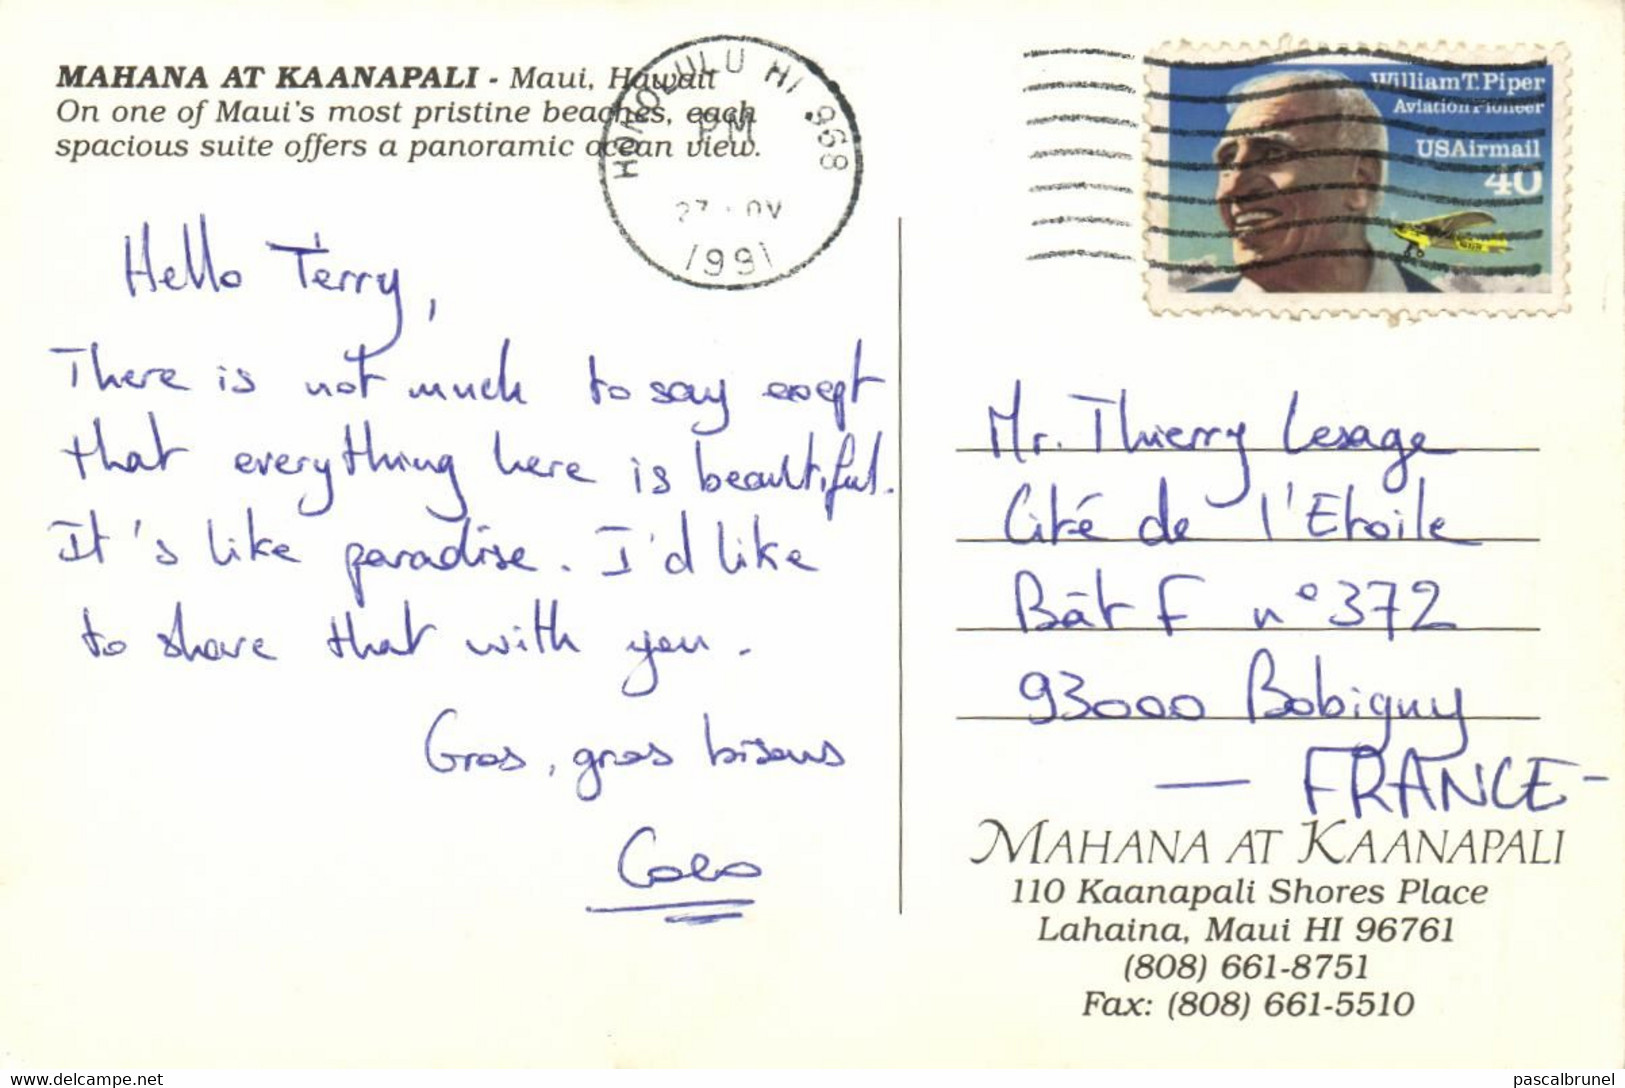 MAHANA AT KAANAPALI - Maui, Hawaii
On one of Maui's most pristine beaches, each
spacious suite offers a panoramic ocean view.
HONOLULU HI 968
PM
27 NOV
1991
William T. Piper
Aviation Pioneer
USAirmail
40
Hello Terry,
There is not much to say except
that everything here is beautiful.
It's like paradise. I'd like
to share that with you.
Gros, gros bisous
Coco
Mr. Thierry Lesage
Cité de l'Etoile
Bât F n°372
93000 Bobigny
— FRANCE -
MAHANA AT KAANAPALI
110 Kaanapali Shores Place
Lahaina, Maui HI 96761
(808) 661-8751
Fax: (808) 661-5510
www.delcampe.net
pascalbrunel